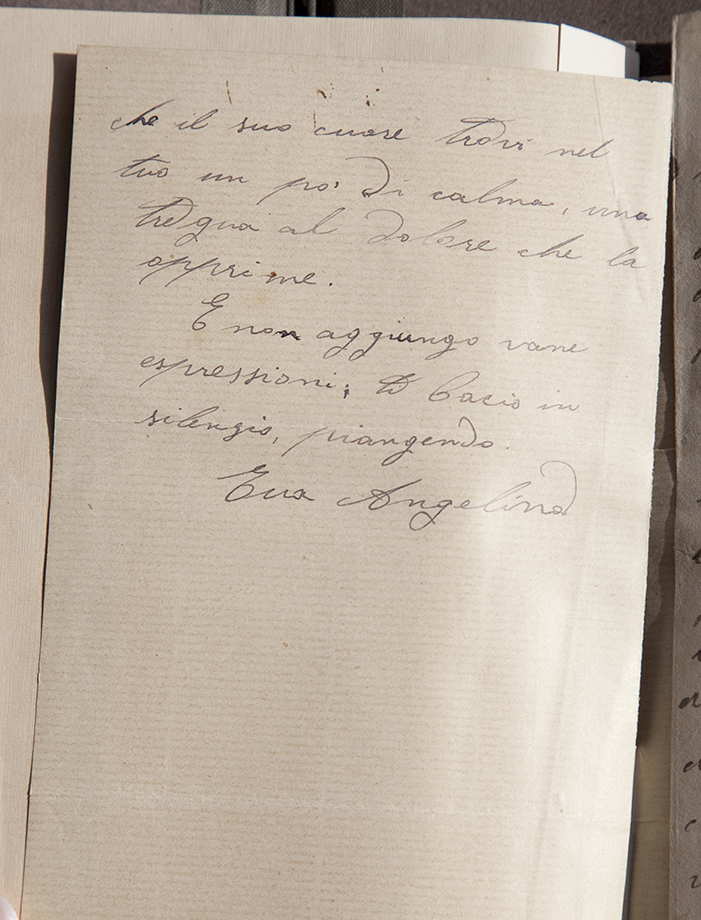 che il suo cuore trovi nel
tuo un po' di calma, una
tregua al dolore che la
opprime.
E non aggiungo vane
espressioni; ti bacio in
silenzio, piangendo.
Tua Angelina